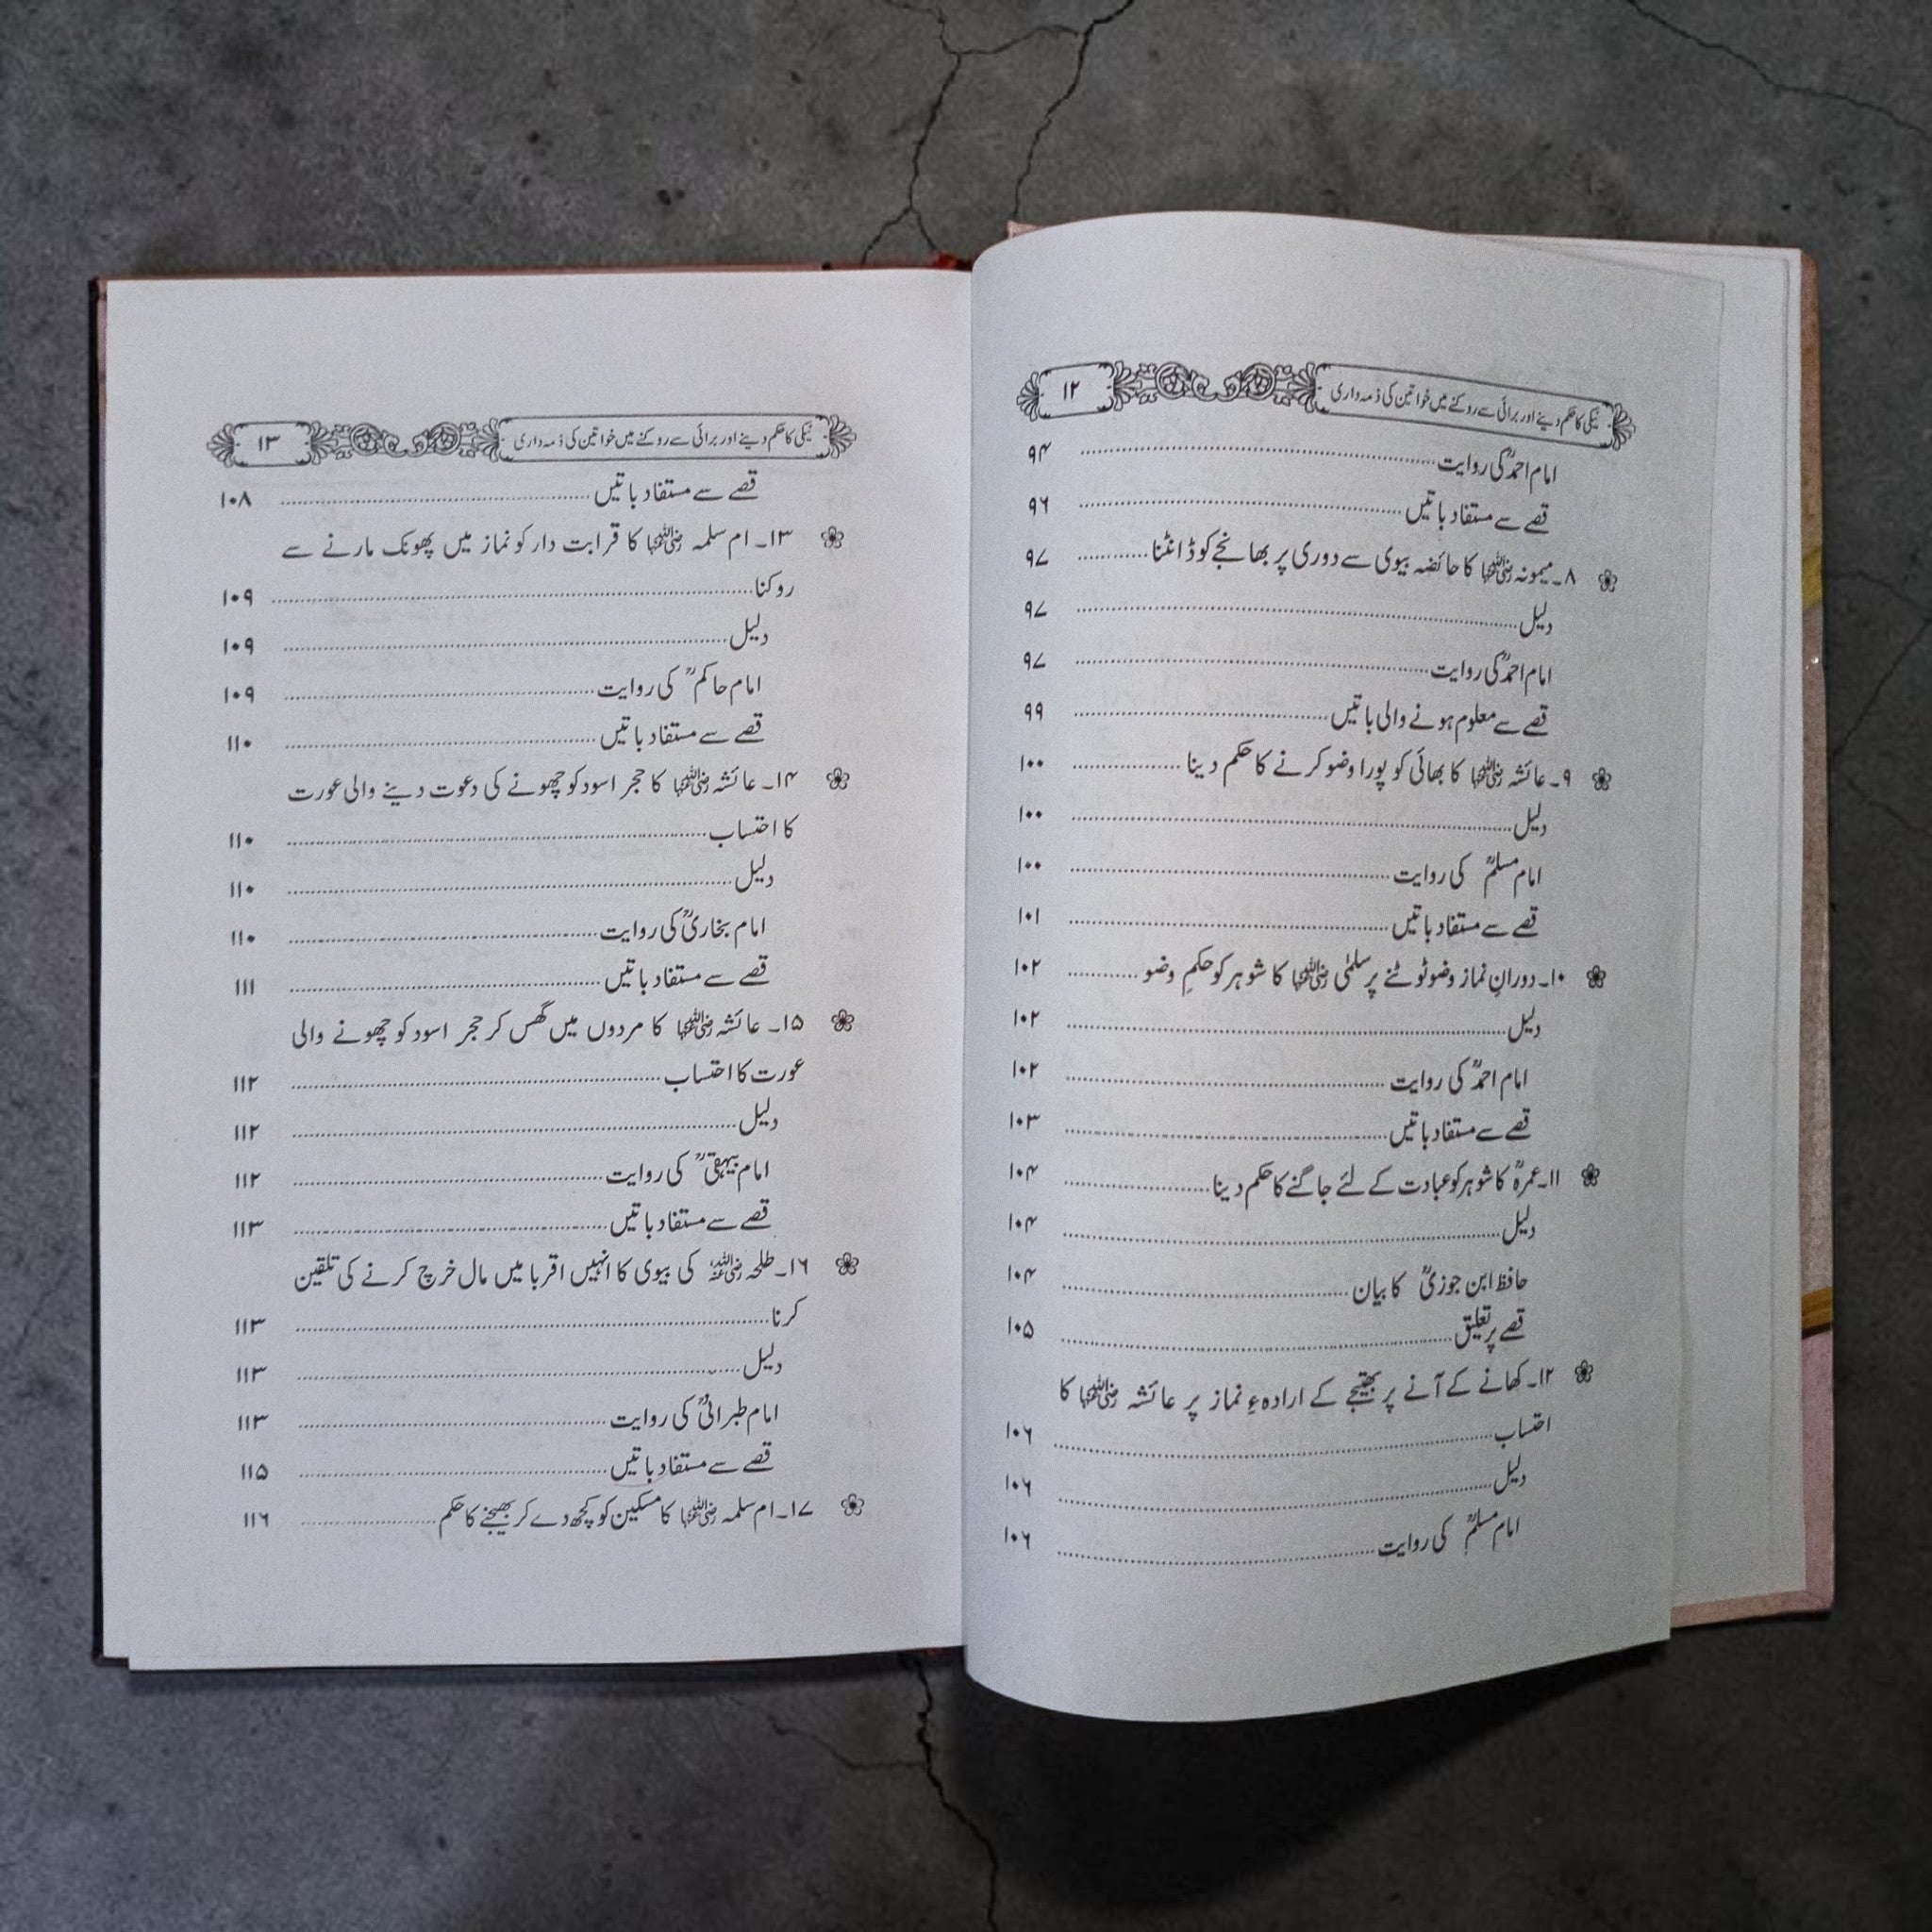 نیکی کا حکم دینے اور برائی سے روکنے میں خواتین کی ذمہ داری ۱۲
امام احمدؒ کی روایت ۹۴
قصے سے مستفاد باتیں ۹۶
۸۔ میمونہ رضی اللہ عنہا کا حائضہ بیوی سے دوری پر بھانجے کو ڈانٹنا ۹۷
دلیل ۹۷
امام احمدؒ کی روایت ۹۷
قصے سے معلوم ہونے والی باتیں ۹۹
۹۔ عائشہ رضی اللہ عنہا کا بھائی کو پورا وضو کرنے کا حکم دینا ۱۰۰
دلیل ۱۰۰
امام مسلمؒ کی روایت ۱۰۰
قصے سے مستفاد باتیں ۱۰۱
۱۰۔ دورانِ نماز وضو ٹوٹنے پر سلمٰی رضی اللہ عنہا کا شوہر کو حکمِ وضو ۱۰۲
دلیل ۱۰۲
امام احمدؒ کی روایت ۱۰۲
قصے سے مستفاد باتیں ۱۰۳
۱۱۔ عمرہؒ کا شوہر کو عبادت کے لئے جاگنے کا حکم دینا ۱۰۴
دلیل ۱۰۴
حافظ ابن جوزیؒ کا بیان ۱۰۴
قصے پر تعلیق ۱۰۵
۱۲۔ کھانے کے آنے پر بھتیجے کے ارادہءِ نماز پر عائشہ رضی اللہ عنہا کا
احتساب ۱۰۶
دلیل ۱۰۶
امام مسلمؒ کی روایت ۱۰۶
نیکی کا حکم دینے اور برائی سے روکنے میں خواتین کی ذمہ داری ۱۳
قصے سے مستفاد باتیں ۱۰۸
۱۳۔ ام سلمہ رضی اللہ عنہا کا قرابت دار کو نماز میں پھونک مارنے سے
روکنا ۱۰۹
دلیل ۱۰۹
امام حاکمؒ کی روایت ۱۰۹
قصے سے مستفاد باتیں ۱۱۰
۱۴۔ عائشہ رضی اللہ عنہا کا حجر اسود کو چھونے کی دعوت دینے والی عورت
کا احتساب ۱۱۰
دلیل ۱۱۰
امام بخاریؒ کی روایت ۱۱۰
قصے سے مستفاد باتیں ۱۱۱
۱۵۔ عائشہ رضی اللہ عنہا کا مردوں میں گھس کر حجر اسود کو چھونے والی
عورت کا احتساب ۱۱۲
دلیل ۱۱۲
امام بیہقیؒ کی روایت ۱۱۲
قصے سے مستفاد باتیں ۱۱۳
۱۶۔ طلحہ رضی اللہ عنہ کی بیوی کا انہیں اقربا میں مال خرچ کرنے کی تلقین
کرنا ۱۱۳
دلیل ۱۱۳
امام طبرانیؒ کی روایت ۱۱۳
قصے سے مستفاد باتیں ۱۱۵
۱۷۔ ام سلمہ رضی اللہ عنہا کا مسکین کو کچھ دے کر بھیجنے کا حکم ۱۱۶